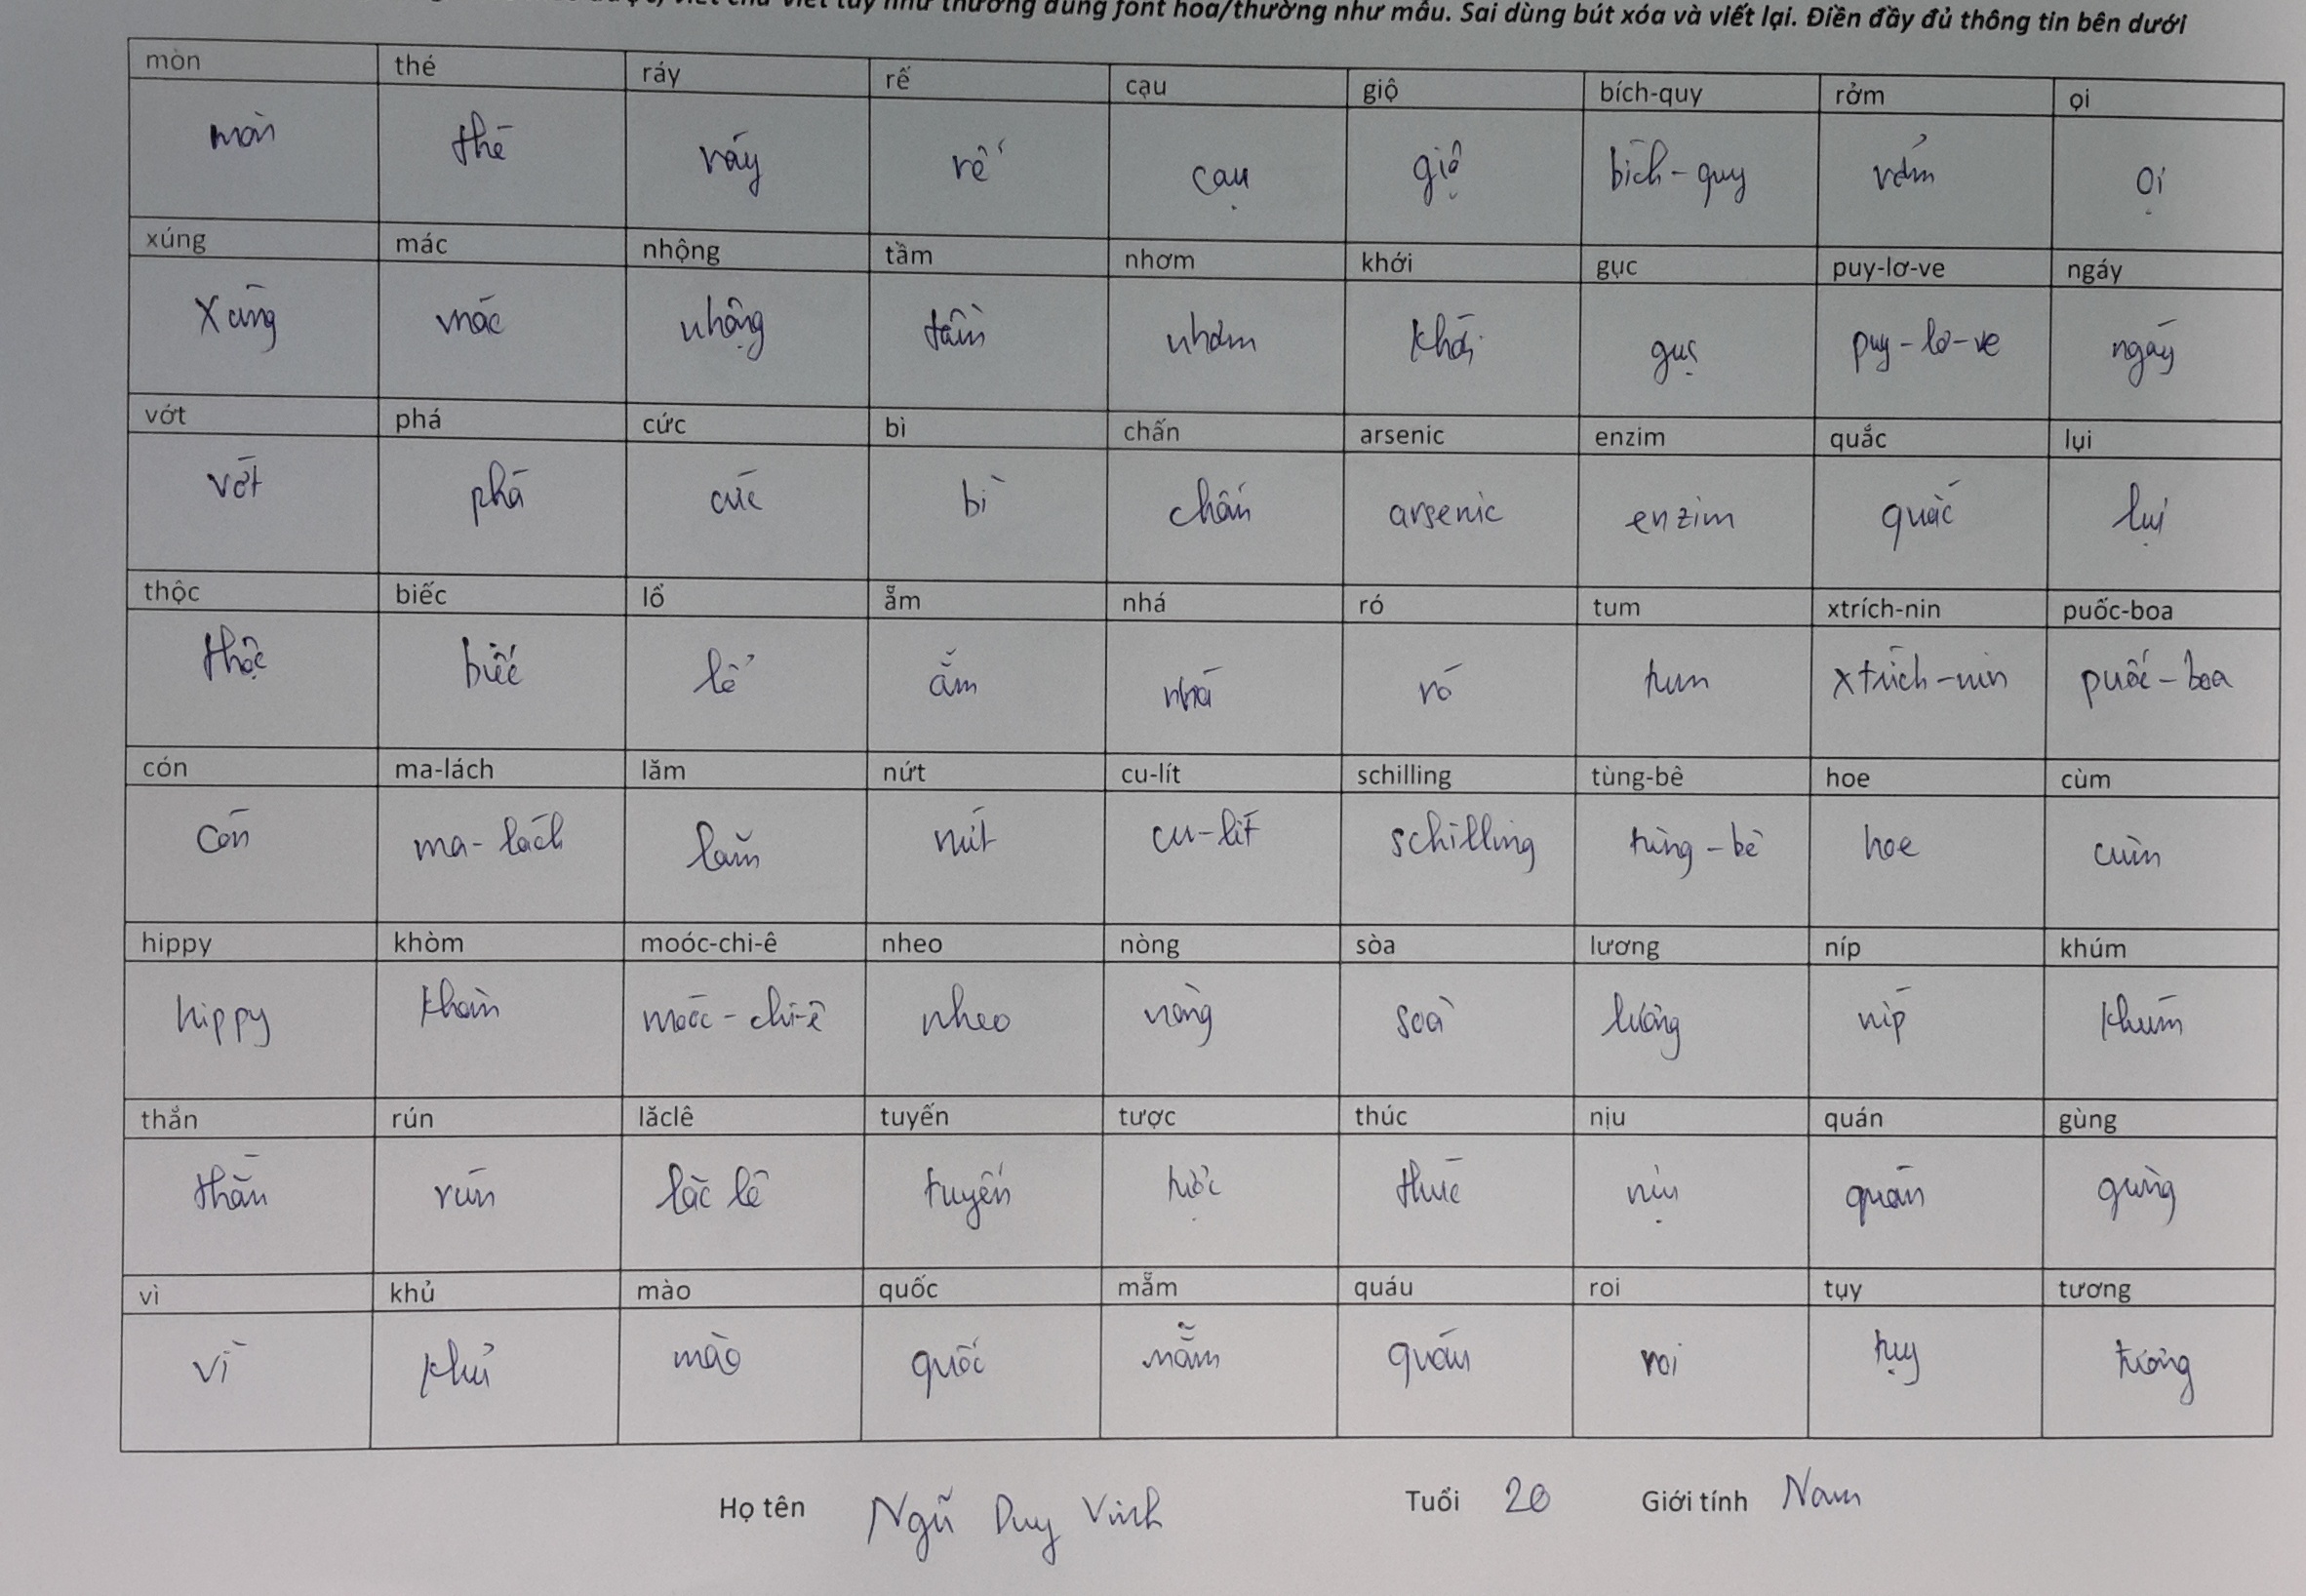 viết chữ viết tay như thường dùng font hoa/thường như mẫu. Sai dùng bút xóa và viết lại. Điền đầy đủ thông tin bên dưới
mòn thé ráy rế cạu giộ bích-quy rởm ọi
mòn thé ráy rế cạu giộ bích-quy rởm ọi
xúng mác nhộng tằm nhơm khới gục puy-lơ-ve ngáy
xúng mác nhộng tằm nhơm khới gục puy-lơ-ve ngáy
vớt phá cức bì chấn arsenic enzim quắc lụi
vớt phá cức bì chấn arsenic enzim quắc lụi
thộc biếc lổ ẵm nhá ró tum xtrích-nin puốc-boa
thộc biếc lổ ẵm nhá ró tum xtrích-nin puốc-boa
cón ma-lách lăm nứt cu-lít schilling tùng-bê hoe cùm
cón ma-lách lăm nứt cu-lít schilling tùng-bê hoe cùm
hippy khòm moóc-chi-ê nheo nòng sòa lương níp khúm
hippy khòm moóc-chi-ê nheo nòng soà lương níp khúm
thắn rún lăclê tuyến tược thúc nịu quán gùng
thắn rún lắc lê tuyến tược thúc nịu quán gùng
vì khủ mào quốc mẫm quáu roi tụy tương
vì khủ mào quốc mẫm quáu roi tụy tương
Họ tên Ngũ Duy Vinh Tuổi 20 Giới tính Nam